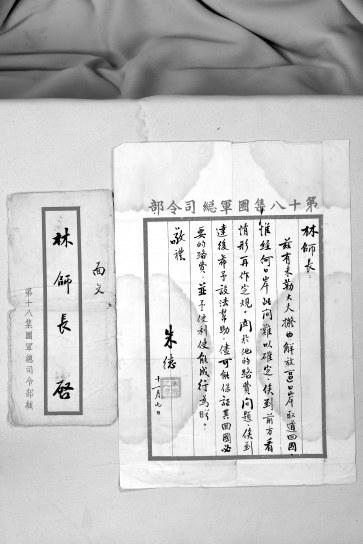 第十八集團軍總司令部
林師長
茲有米勒大夫擬由解放區口岸取道回國，
惟經何口岸此間難以確定，俟到前方看
情形再作定規。關於他的路費問題，俟到
達後希予設法幫助，儘可能保證其回國必
要的路費，並予便利使能成行為盼。
敬禮
朱德
十一月七日
面交
林師長啓
第十八集團軍總司令部緘